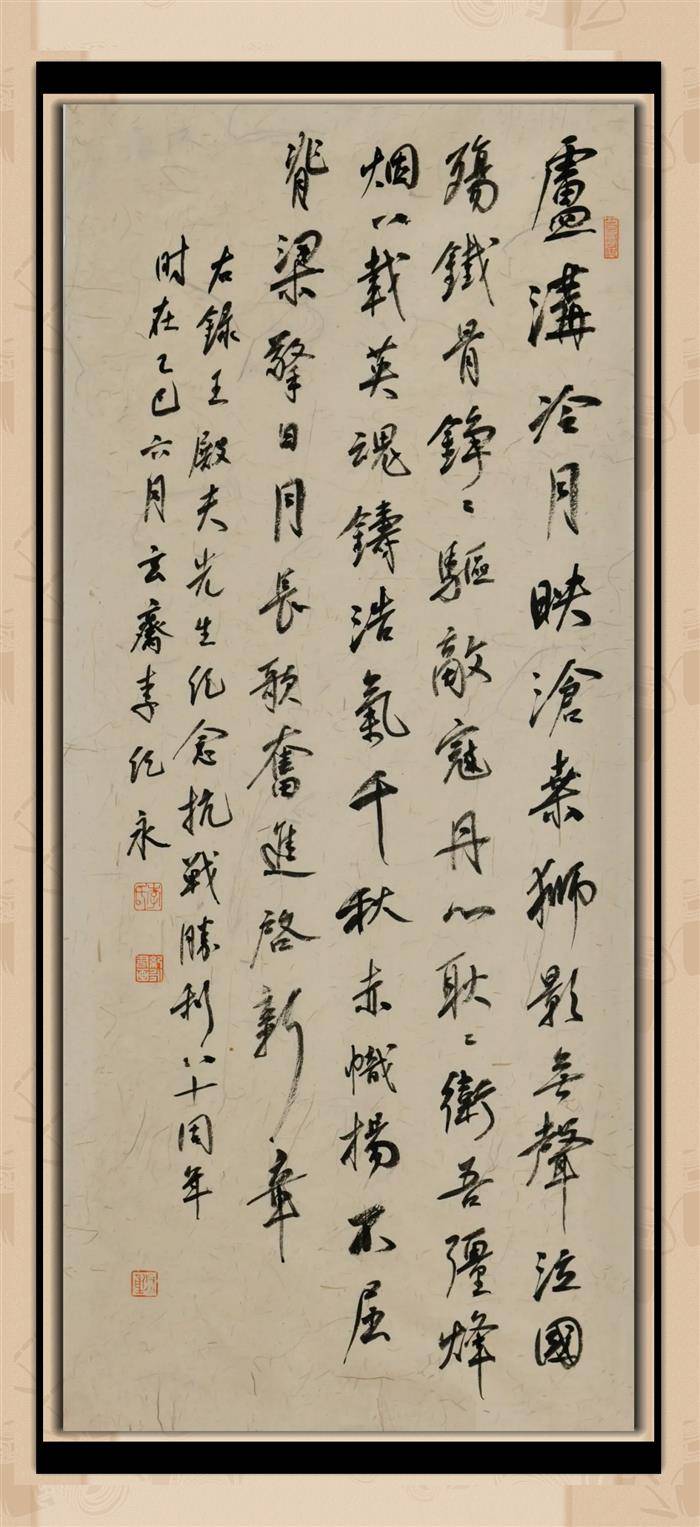 盧溝冷月映滄桑獅影無聲泣國
殤鐵骨錚〻驅敵寇丹心耿〻衛吾疆烽
烟八載英魂鑄浩氣千秋赤幟揚不屈
脊梁擎日月長歌奮進啓新章
右録王殿夫先生纪念抗戰勝利八十周年
时在乙巳六月玄齋李纪永